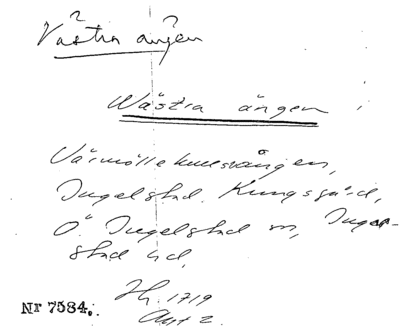 Västra ången
Wästra ängen
Värmöllekullsvången,
Ingelstad. Kungsgård,
Ö. Ingelstad sn, Ingel-
stad hd.
Jb. 1719
Akt 2.
Nr 7584.